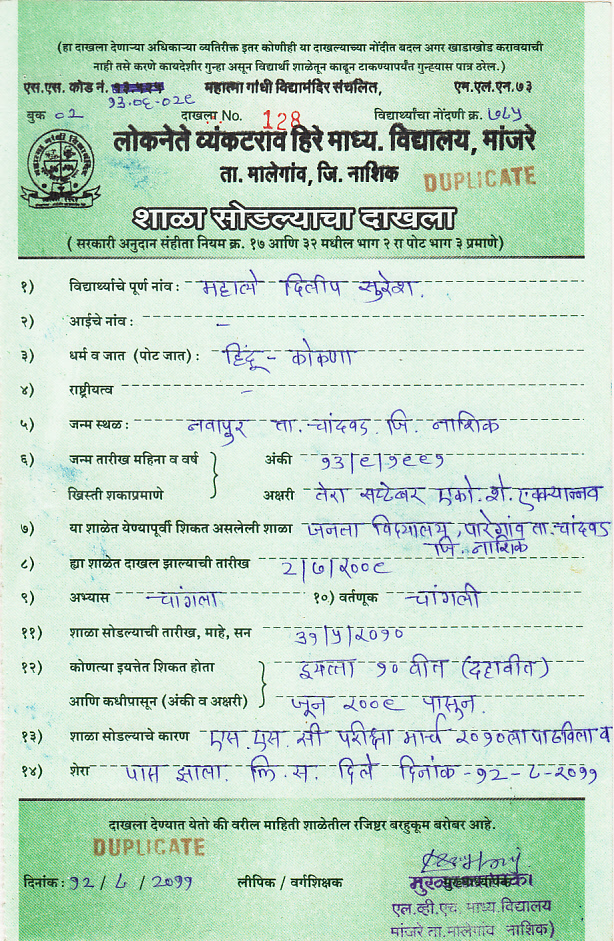 (हा दाखला देणाऱ्या अधिकाऱ्या व्यतिरीक्त इतर कोणीही या दाखल्याच्या नोंदीत बदल अगर खाडाखोड करावयाची
नाही तसे करणे कायदेशीर गुन्हा असून विद्यार्थी शाळेतून काढून टाकण्यापर्यंत गुन्ह्यास पात्र ठरेल.)
एस.एस. कोड नं. महात्मा गांधी विद्यामंदिर संचलित, एम.एल.एन.७३
१३.०६.०२९
बुक ०२ दाखला No. 128 विद्यार्थ्यांचा नोंदणी क्र. ७८५
लोकनेते व्यंकटराव हिरे माध्य. विद्यालय, मांजरे
ता. मालेगांव, जि. नाशिक
DUPLICATE
शाळा सोडल्याचा दाखला
( सरकारी अनुदान संहीता नियम क्र. १७ आणि ३२ मधील भाग २ रा पोट भाग ३ प्रमाणे)
१) विद्यार्थ्याचे पूर्ण नांव : महाले दिलीप सुरेश.
२) आईचे नांव : –
३) धर्म व जात (पोट जात) : हिंदू - कोकणा
४) राष्ट्रीयत्व –
५) जन्म स्थळ : नवापुर ता. चांदवड. जि. नाशिक
६) जन्म तारीख महिना व वर्ष अंकी १३/९/१९९१
ख्रिस्ती शकाप्रमाणे अक्षरी तेरा सप्टेंबर एको. शे. एक्क्यान्नव
७) या शाळेत येण्यापूर्वी शिकत असलेली शाळा जनता विद्यालय, पारेगांव ता. चांदवड
जि. नाशिक
८) ह्या शाळेत दाखल झाल्याची तारीख 2/७/२००९
९) अभ्यास चांगला १०) वर्तणूक चांगली
११) शाळा सोडल्याची तारीख, माहे, सन ३१/५/२०१०
१२) कोणत्या इयत्तेत शिकत होता इयत्ता १० वीत (दहावीत)
आणि कधीपासून (अंकी व अक्षरी) जून २००९ पासून.
१३) शाळा सोडल्याचे कारण एस. एस. सी परीक्षा मार्च २०१०ला पाठविला व
१४) शेरा पास झाला. लि. स. दिले दिनांक - १२-८-२०११
दाखला देण्यात येतो की वरील माहिती शाळेतील रजिष्टर बरहुकूम बरोबर आहे.
DUPLICATE
दिनांक : १२ / ८ / २०११ लीपीक / वर्गशिक्षक
एल.व्ही.एच. माध्य.विद्यालय
मांजरे ता.मालेगांव नाशिक)